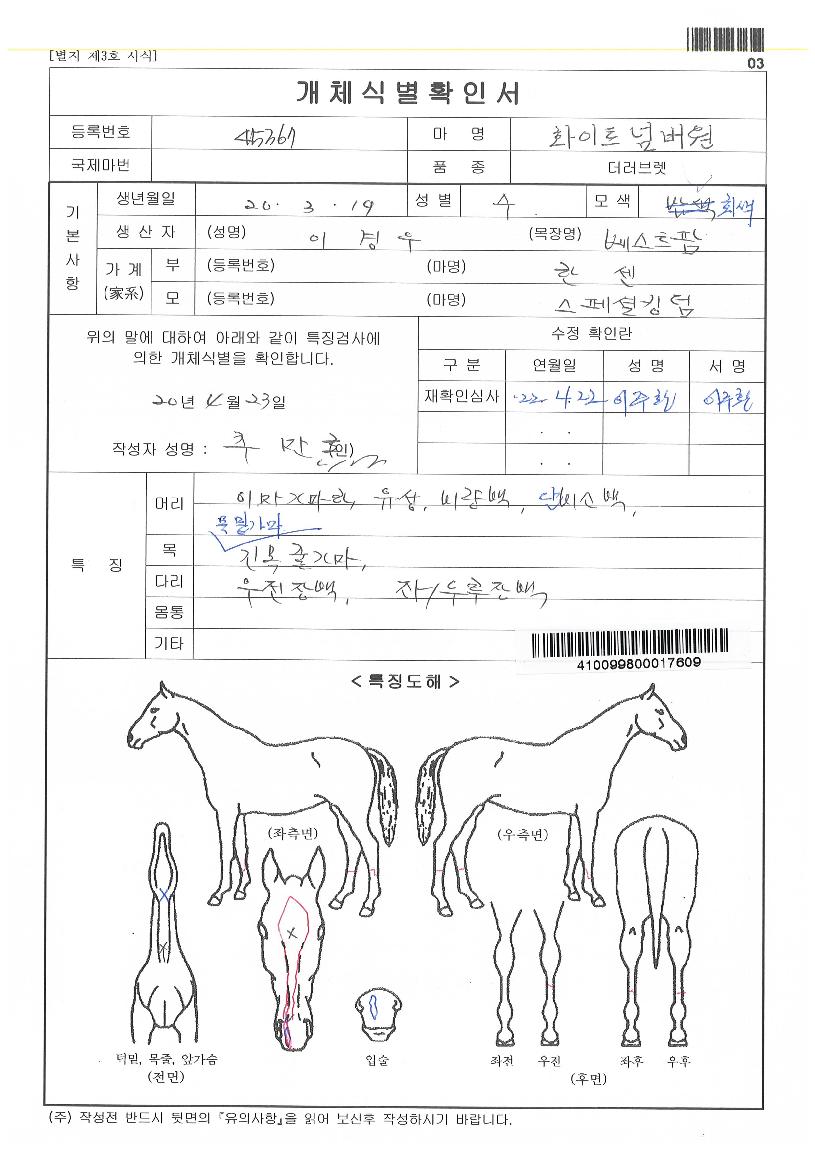 [별지 제3호 서식]
03
개체식별확인서
등록번호 45367 마 명 화이트넘버원
국제마번 품 종 더러브렛
기본사항
생년월일 20. 3. 19 성 별 수. 모 색 회색
생 산 자 (성명) 이 경 우 (목장명) 베스트팜
가 계 (家系)
부 (등록번호) (마명) 한 센
모 (등록번호) (마명) 스페셜킹덤
위의 말에 대하여 아래와 같이 특징검사에
의한 개체식별을 확인합니다.
20년 4월 23일
작성자 성명 : (인)
수정 확인란
구 분 연월일 성 명 서 명
재확인심사 '22. 4. 22
. .
. .
특 징
머리 이마가마, 유성, 비량백,
목밑가마
목 진목줄가마,
다리 우전장백, 좌/우후장백
몸통
기타
410099800017609
< 특징도해 >
(좌측면) (우측면)
턱밑, 목줄, 앞가슴 입술 좌전 우전 좌후 우후
(전면) (후면)
(주) 작성전 반드시 뒷면의 『유의사항』을 읽어 보신후 작성하시기 바랍니다.